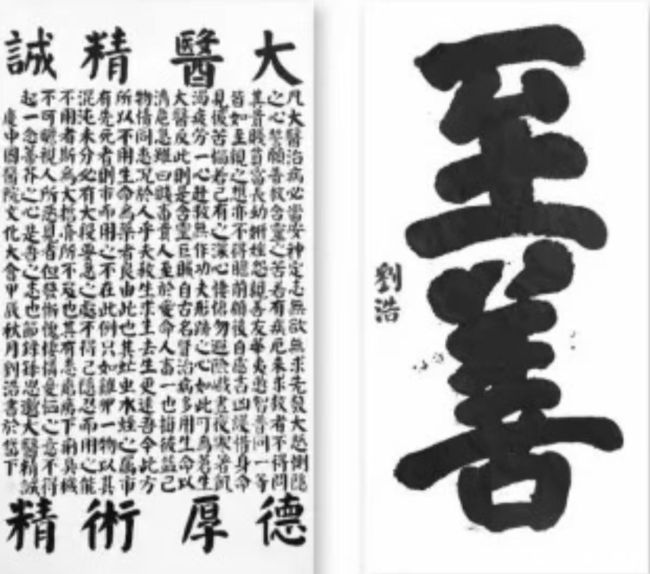 大醫精誠
凡大醫治病必當安神定志無欲無求先發大慈惻隱
之心誓願普救含靈之苦若有疾厄來求救者不得問
其貴賤貧富長幼妍媸怨親善友華夷愚智普同一等
皆如至親之想亦不得瞻前顧後自慮吉凶護惜身命
見彼苦惱若己有之深心悽愴勿避險巇晝夜寒暑飢
渴疲勞一心赴救無作功夫形跡之心如此可為蒼生
大醫反此則是含靈巨賊自古名賢治病多用生命以
濟危急雖曰賤畜貴人至於愛命人畜一也損彼益己
物情同患況於人乎夫殺生求生去生更遠吾今此方
所以不用生命為藥者良由此也其虻虫水蛭之屬市
有先死者則市而用之不在此例只如雞卵一物以其
混沌未分必有大段要急之處不得已隱忍而用之能
不用者斯為大哲亦所不及也其有患瘡痍下痢臭穢
不可瞻視人所惡見者但發慚愧悽憐憂恤之意不得
起一念蒂芥之心是吾之志也節錄孫思邈大醫精誠
中國醫院文化大會甲戌秋月劉浩書於下
德厚術精
至善
劉浩